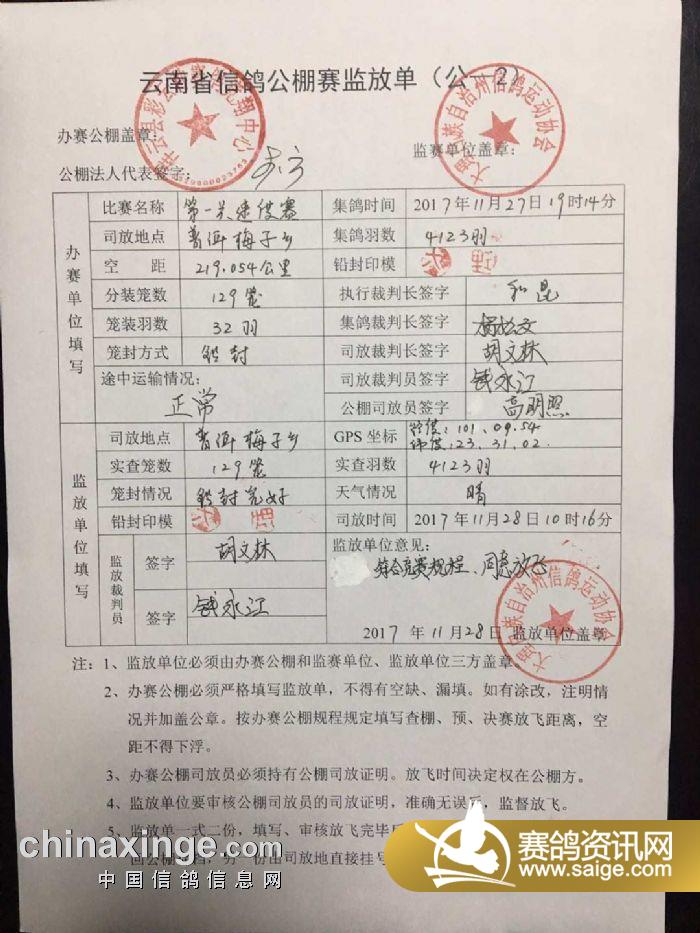 云南省信鸽公棚赛监放单（公—2）
办赛公棚盖章：
监赛单位盖章：
大理白族自治州信鸽运动协会
公棚法人代表签字：
办赛单位填写
比赛名称 第一关速度赛 集鸽时间 2017年11月27日19时14分
司放地点 普洱梅子乡 集鸽羽数 4123羽
空 距 219.054公里 铅封印模
分装笼数 129笼 执行裁判长签字 和昆
笼装羽数 32羽 集鸽裁判长签字 杨松文
笼封方式 铅封 司放裁判长签字 胡文林
途中运输情况： 司放裁判员签字 钱永江
正常 公棚司放员签字 高明照
监放单位填写
司放地点 普洱梅子乡 GPS 坐标 经度：101.09.54
纬度：23.31.02
实查笼数 129笼 实查羽数 4123羽
笼封情况 铅封完好 天气情况 晴
铅封印模 司放时间 2017年11月28日10时16分
监放裁判员
签字 胡文林 监放单位意见：
符合竞赛规程、同意放飞
签字 钱永江
2017年11月28日 监放单位盖章
大理白族自治州信鸽运动协会
注：1、监放单位必须由办赛公棚和监赛单位、监放单位三方盖章。
2、办赛公棚必须严格填写监放单，不得有空缺、漏填。如有涂改，注明情
况并加盖公章。按办赛公棚规程规定填写查棚、预、决赛放飞距离，空
距不得下浮。
3、办赛公棚司放员必须持有公棚司放证明。放飞时间决定权在公棚方。
4、监放单位要审核公棚司放员的司放证明，准确无误后，监督放飞。
5、监放单一式二份，填写、审核放飞完毕
回公棚存档，另一份由司放地直接挂号
chinaxinge.com
中国信鸽信息网
赛鸽资讯网
www.saige.com